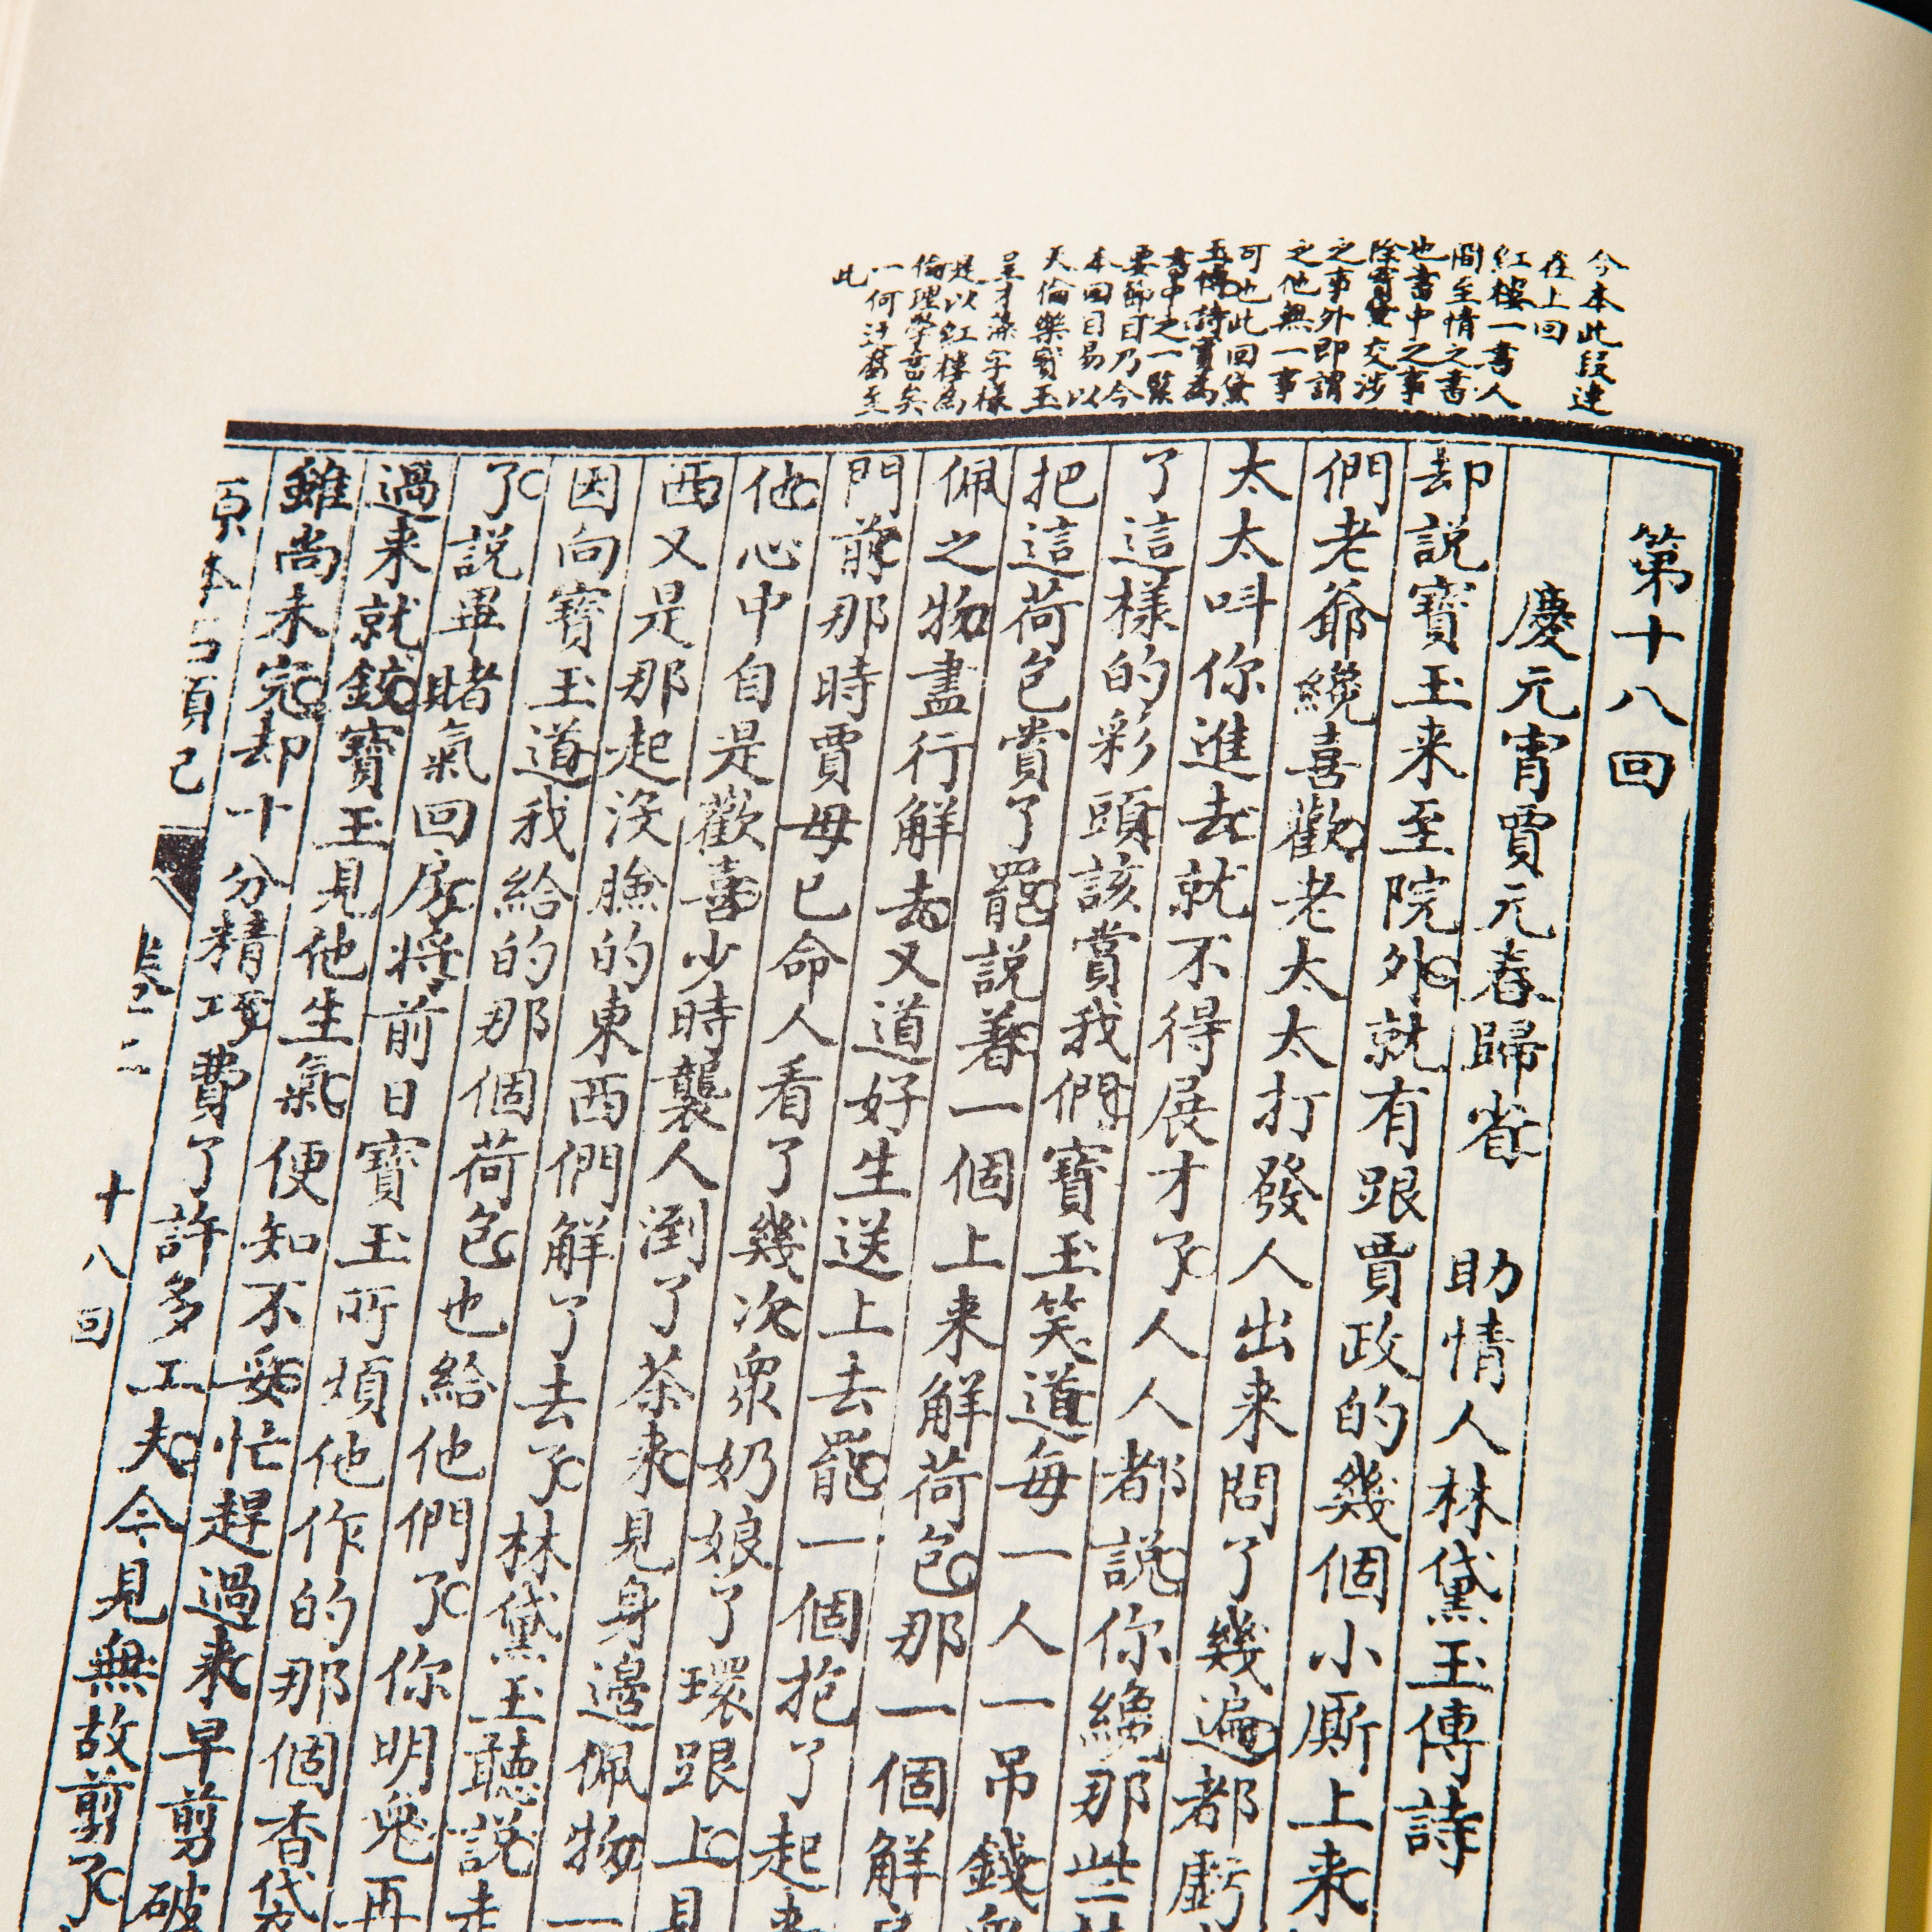 今本此段連
在上回
紅樓一書人
間至情之書
也書中之事
除寶黛交涉
之事外即謂
之他無一事
可也此回黛
玉傳詩實為
書中之一緊
要節目乃今
本回目易以
天倫樂寶玉
呈才藻字樣
是以紅樓為
倫理學書矣
一何迂舊至
此
第十八回
慶元宵賈元春歸省 助情人林黛玉傳詩
却說寶玉来至院外就有跟賈政的幾個小厮上来
們老爺纔喜歡老太太打發人出来問了幾遍都虧
太太呌你進去就不得展才了人人都說你纔那些
了這樣的彩頭該賞我們寶玉笑道每一人一吊錢
把這荷包賞了罷說着一個上来解荷包那一個解
佩之物盡行解去又道好生送上去罷一個抱了起来
門前那時賈母已命人看了幾次衆奶娘了環跟上見
他心中自是歡喜少時襲人倒了茶来見身邊佩物一
西又是那起沒臉的東西們解了去了林黛玉聽說走
因向寶玉道我給的那個荷包也給他們了你明兒再
了說畢賭氣回房将前日寶玉所煩他作的那個香袋
過来就鉸寶玉見他生氣便知不妥忙趕過来早剪破
雖尚未完却十分精巧費了許多工夫今見無故剪了
卷二
十八回